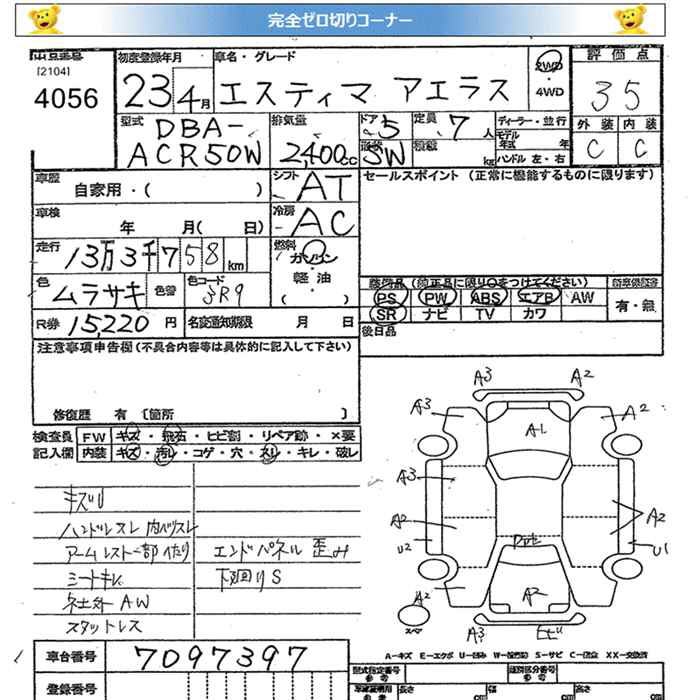 完全ゼロ切りコーナー
出品番号 初度登録年月 車名・グレード 評価点
[2104]
4056 23 4月 エスティマ アエラス 2WD ・ 4WD 35
型式 排気量 ドア 5 定員 7人 ディーラー・並行 外装 内装
DBA- ACR50W 2,400cc 形状 SW 積載 kg モデル年式 年 C C
ハンドル 左・右
車歴 自家用・( ) シフト AT セールスポイント (正常に機能するものに限ります)
車検 年 月( 日) 冷房 AC
走行 13万3千758km 燃料 ガソリン・軽油・( )
色 ムラサキ 色替 色コード 装備品 (純正品に限り○をつけてください) 新車保証書
PS PW ABS エアB AW 有・無
R券 15220円 名変通知期限 月 日 SR ナビ TV カワ
後日品
注意事項申告欄(不具合内容等は具体的に記入して下さい)
修復歴 有 [箇所 ]
検査員 FW キズ・飛石・ヒビ割・リペア跡・×要
記入欄 内装 キズ・汚レ・コゲ・穴・スレ・キレ・破レ
キズU
ハンドルスレ 内ハリスレ
アームレスト一部
エンドパネル歪み
シートキレ
下廻りS
社外AW
スタットレス
A3 A2
A3 A2
A1
A3
A2 A2
U2 U1
A2 A2
スペア
A3
A-キズ E-エクボ U-凹み W-(補修跡) S-サビ C-腐食 XX-交換済
車台番号 7097397 型式指定番号 参考 類別区分番号 参考
登録番号 車庫証明用 参考 長さ cm 幅 cm 高さ cm